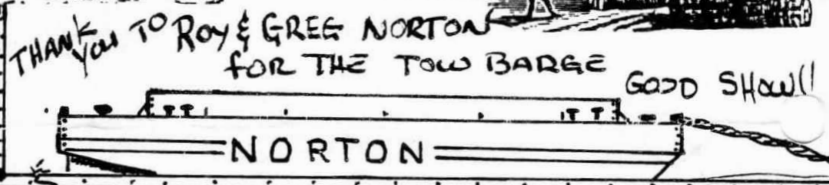 THANK YOU TO ROY & GREG NORTON
FOR THE TOW BARGE
GOOD SHOW!!
NORTON